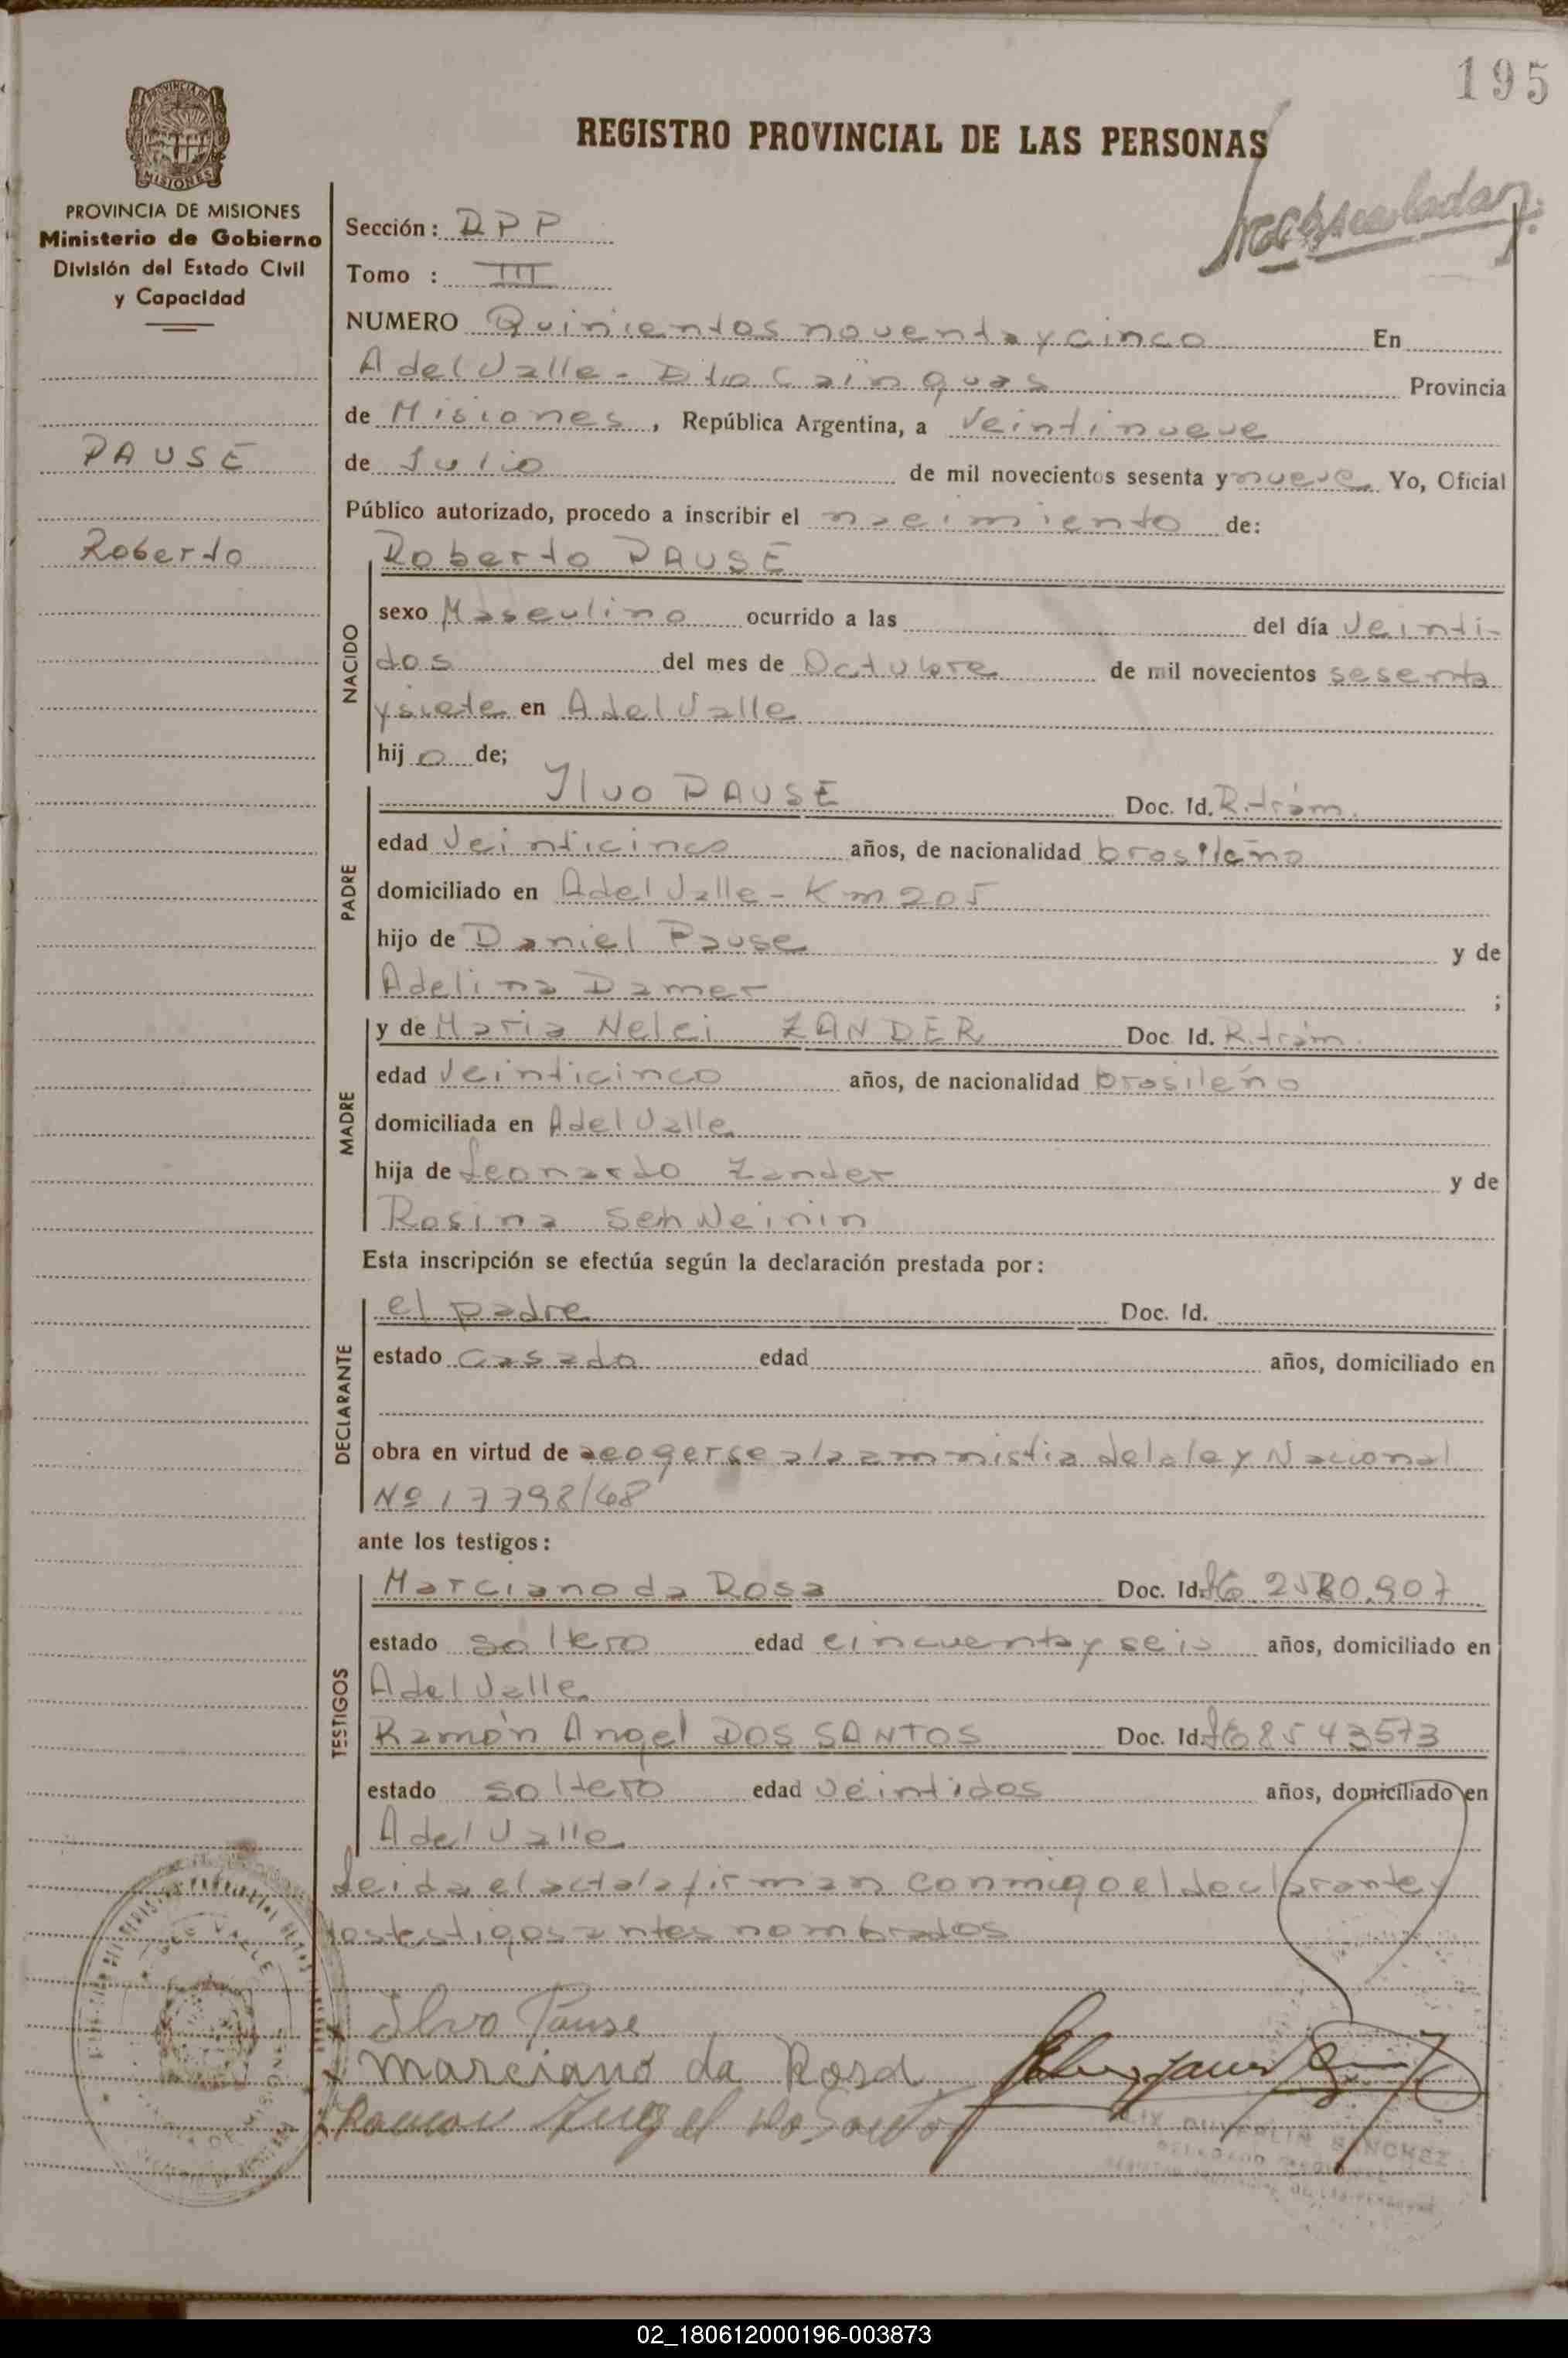 195
REGISTRO PROVINCIAL DE LAS PERSONAS
MISIONES
PROVINCIA DE MISIONES
Ministerio de Gobierno
División del Estado Civil
y Capacidad
PAUSE
Roberto
Sección: DPP
Tomo : III
NUMERO Quinientos noventa y cinco En
A del Valle - Dto Cainguas Provincia
de Misiones, República Argentina, a Veintinueve
de Julio de mil novecientos sesenta y nueve Yo, Oficial
Público autorizado, procedo a inscribir el nacimiento de:
NACIDO
Roberto PAUSE
sexo Masculino ocurrido a las del día Veinti-
dos del mes de Octubre de mil novecientos sesenta
y siete en A del Valle
hijo de;
PADRE
Ilvo PAUSE Doc. Id. R. trám.
edad Veinticinco años, de nacionalidad brasileño
domiciliado en A del Valle - Km 205
hijo de Daniel Pause y de
Adelina Damer ;
MADRE
y de Maria Nelci ZANDER Doc. Id. R. trám.
edad Veinticinco años, de nacionalidad brasileño
domiciliada en A del Valle
hija de Leonardo Zander y de
Rosina Schweinin
Esta inscripción se efectúa según la declaración prestada por:
DECLARANTE
el padre Doc. Id.
estado Casado edad años, domiciliado en
obra en virtud de acogerse a la amnistia de la ley Nacional
Nº 17798/68
ante los testigos:
TESTIGOS
Marciano da Rosa Doc. Id. 2580.907
estado soltero edad cincuenta y seis años, domiciliado en
A del Valle
Ramón Angel DOS SANTOS Doc. Id. 8543573
estado soltero edad veintidos años, domiciliado en
A del Valle
Leida el acta la firman conmigo el declarante y
los testigos antes nombrados
Ilvo Pause
Marciano da Rosa
Ramon Angel do Santo
SANCHEZ
02_180612000196-003873